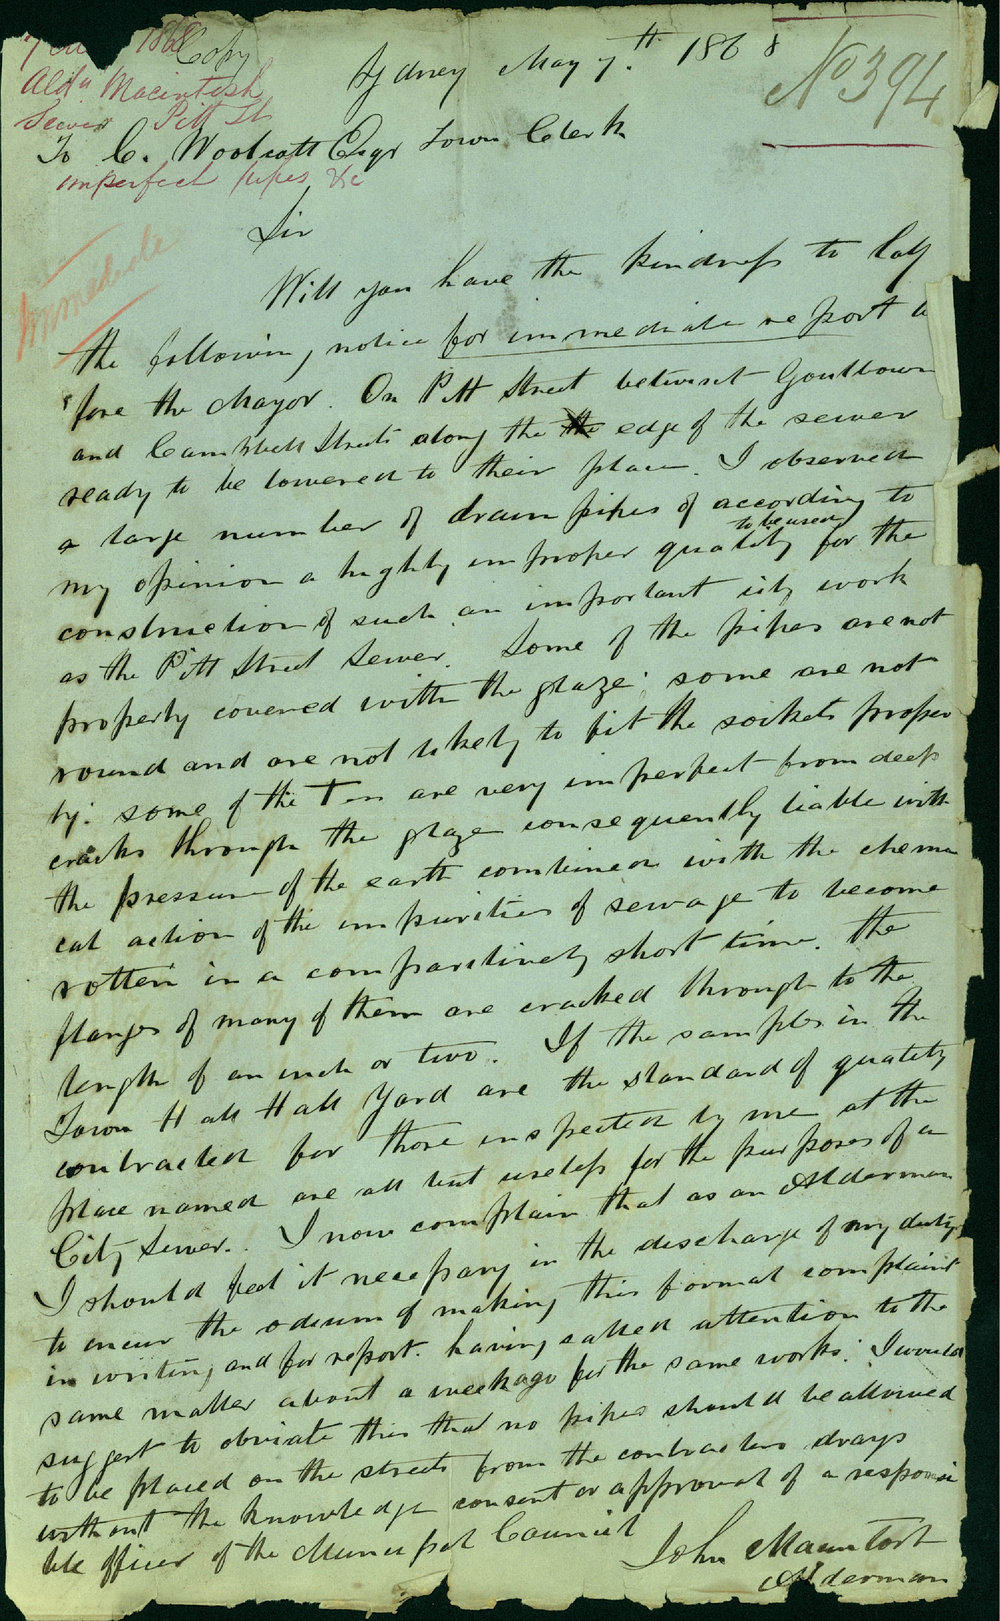 1868 Copy
Sydney May 7th. 1868
No 394
Aldn Macintosh
Sewer Pitt St
To C. Woolcott Esqr Town Clerk
imperfect pipes &c
Immediate
Sir
Will you have the kindness to lay
the following notice for immediate report be
fore the Mayor. On Pitt Street betwixt Goulbourn
and Campbell Streets along the the edge of the sewer
ready to be lowered to their place. I observed
a large number of drain pipes of according to
my opinion a highly improper quality to be used for the
construction of such an important city work
as the Pitt Street Sewer. Some of the pipes are not
properly covered with the glaze; some are not
round and are not likely to fit the sockets proper
ly: some of the Ten are very imperfect from deep
cracks through the glaze consequently liable with
the pressure of the earth combined with the chemi
cal action of the impurities of sewage to become
rotten in a comparitively short time. The
flanges of many of them are cracked through to the
length of an inch or two. If the samples in the
Town Hall Hall Yard are the standard of quality
contracted for those inspected by me at the
place named are all but useless for the purposes of a
City Sewer. I now complain that as an Alderman
I should feel it necessary in the discharge of my duty
to incur the odium of making this formal complaint
in writing and for report. having called attention to the
same matter about a week ago for the same works. I would
suggest to obviate this that no pipes should be allowed
to be placed on the streets from the contractors drays
without the knowledge consent or approval of a responsi
ble officer of the Municipal Council
John Macintosh
Alderman